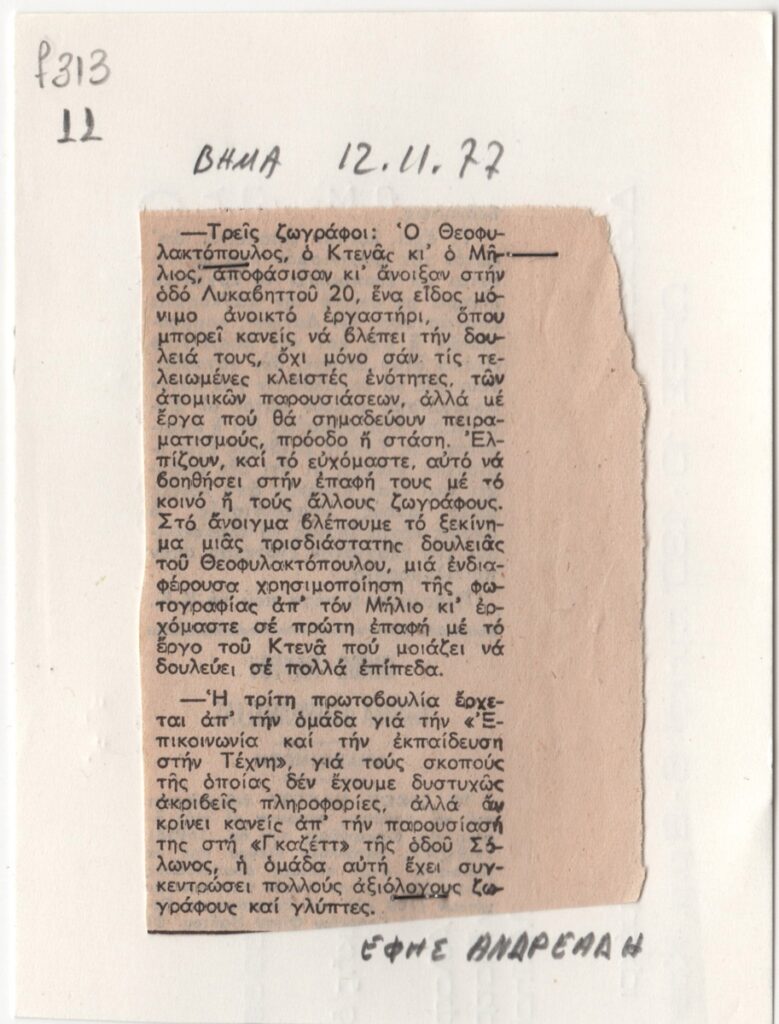 f313
11
ΒΗΜΑ 12.11.77
—Τρεῖς ζωγράφοι: Ὁ Θεοφυ-
λακτόπουλος, ὁ Κτενᾶς κι' ὁ Μή-
λιος, ἀποφάσισαν κι' ἄνοιξαν στήν
ὁδό Λυκαβηττοῦ 20, ἕνα εἶδος μό-
νιμο ἀνοικτό ἐργαστήρι, ὅπου
μπορεῖ κανείς νά βλέπει τήν δου-
λειά τους, ὄχι μόνο σάν τίς τε-
λειωμένες κλειστές ἑνότητες, τῶν
ἀτομικῶν παρουσιάσεων, ἀλλά μέ
ἔργα πού θά σημαδεύουν πειρα-
ματισμούς, πρόοδο ἤ στάση. Ἐλ-
πίζουν, καί τό εὐχόμαστε, αὐτό νά
βοηθήσει στήν ἐπαφή τους μέ τό
κοινό ἤ τούς ἄλλους ζωγράφους.
Στό ἄνοιγμα βλέπουμε τό ξεκίνη-
μα μιᾶς τρισδιάστατης δουλειᾶς
τοῦ Θεοφυλακτόπουλου, μιά ἐνδια-
φέρουσα χρησιμοποίηση τῆς φω-
τογραφίας ἀπ' τόν Μήλιο κι' ἐρ-
χόμαστε σέ πρώτη ἐπαφή μέ τό
ἔργο τοῦ Κτενᾶ πού μοιάζει νά
δουλεύει σέ πολλά ἐπίπεδα.
—Ἡ τρίτη πρωτοβουλία ἔρχε-
ται ἀπ' τήν ὁμάδα γιά τήν «Ἐ-
πικοινωνία καί τήν ἐκπαίδευση
στήν Τέχνη», γιά τούς σκοπούς
τῆς ὁποίας δέν ἔχουμε δυστυχῶς
ἀκριβεῖς πληροφορίες, ἀλλά ἄν
κρίνει κανείς ἀπ' τήν παρουσίασή
της στή «Γκαζέττ» τῆς ὁδοῦ Σό-
λωνος, ἡ ὁμάδα αὐτή ἔχει συγ-
κεντρώσει πολλούς ἀξιόλογους ζω-
γράφους καί γλύπτες.
ΕΦΗΣ ΑΝΔΡΕΑΔΗ